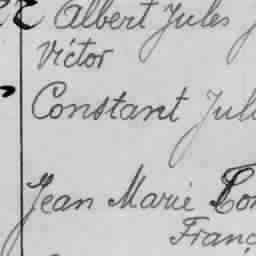 Albert Jules
Victor
Constant Jul
Jean Marie
Franç